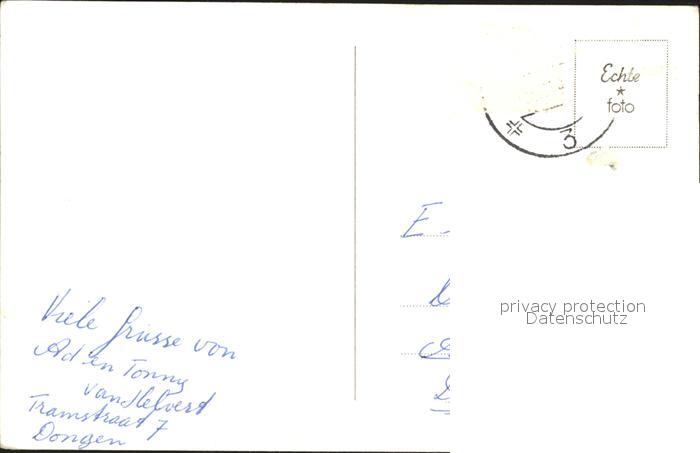 Echte
*
foto
3
E
privacy protection
Datenschutz
Viele grüsse von
Ad en Tonny
van Helvert
Tramstraat 7
Dongen